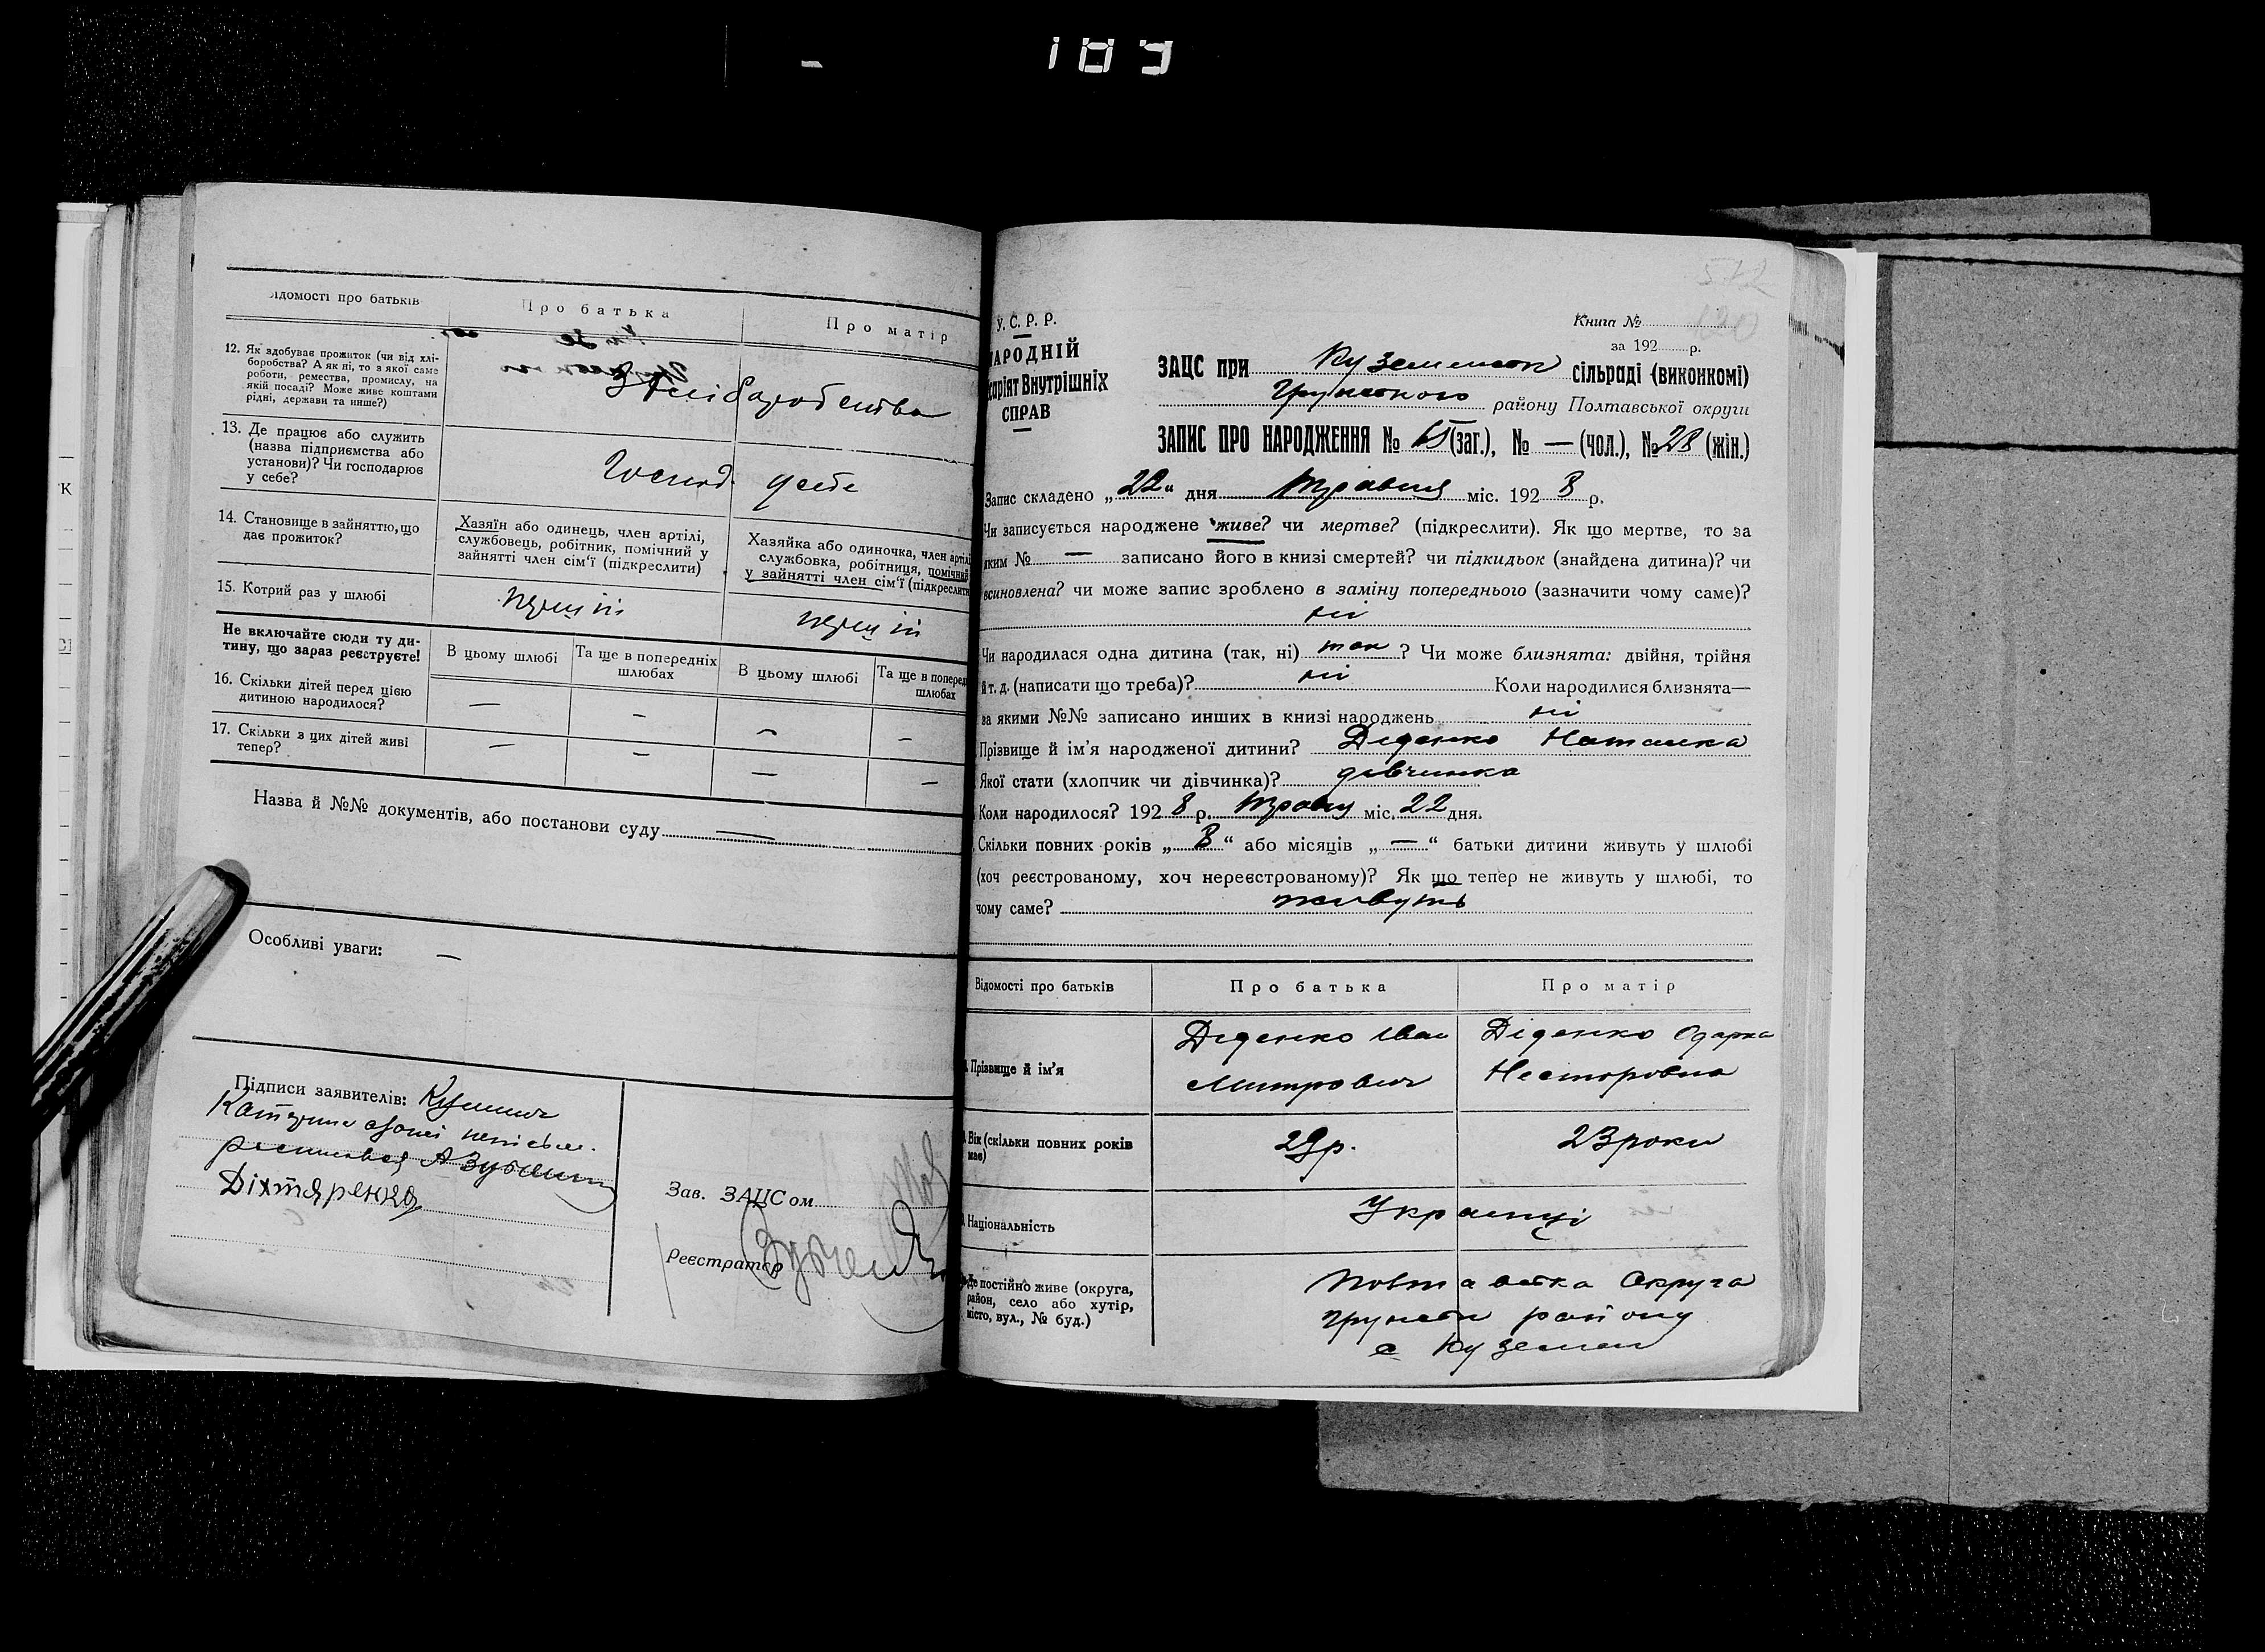 189
Відомості про батьків
Про батька
Про матір
12. Як здобуває прожиток (чи від хлі-
боробства? А як ні, то з якої саме
роботи, ремества, промислу, на
якій посаді? Може живе коштами
рідні, держави та инше?)
З хліборобства
13. Де працює або служить
(назва підприємства або
установи)? Чи господарює
у себе?
Господ. у себе
14. Становище в зайняттю, що
дає прожиток?
Хазяїн або одинець, член артілі,
службовець, робітник, помічний у
зайнятті член сім'ї (підкреслити)
Хазяйка або одиночка, член артілі
службовка, робітниця, помічний
у зайнятті член сім'ї (підкреслити
15. Котрий раз у шлюбі
перший
перший
Не включайте сюди ту ди-
тину, що зараз реєструєте!
В цьому шлюбі
Та ще в попередніх
шлюбах
В цьому шлюбі
Та ще в поперед
шлюбах
16. Скільки дітей перед цією
дитиною народилося?
— — — —
17. Скільки з цих дітей живі
тепер?
— — — —
Назва й №№ документів, або постанови суду —
Особливі уваги: —
Підписи заявителів:
Діхтяренко
Зав. ЗАЦСом
Реєстратор
572
190
У. С. Р. Р.
НАРОДНІЙ
саріят Внутрішніх
СПРАВ
Книга №
за 192 р.
ЗАЦС при Куземенськ сільраді (виконкомі)
Грунського району Полтавської округи
ЗАПИС ПРО НАРОДЖЕННЯ № (заг.), № — (чол.), № 28 (жін.)
Запис складено „22“ дня Травня міс. 192 8 р.
Чи записується народжене живе? чи мертве? (підкреслити). Як що мертве, то за
яким № — записано його в книзі смертей? чи підкидьок (знайдена дитина)? чи
всиновлена? чи може запис зроблено в заміну попереднього (зазначити чому саме)?
ні
Чи народилася одна дитина (так, ні) так ? Чи може близнята: двійня, трійня
й т. д. (написати що треба)? ні Коли народилися близнята—
за якими №№ записано инших в книзі народжень ні
Прізвище й ім'я народженої дитини? Діденко Наталка
Якої стати (хлопчик чи дівчинка)? дівчинка
Коли народилося? 192 8 р. Травня міс. 22 дня.
Скільки повних років „ 8 “ або місяців „ — “ батьки дитини живуть у шлюбі
(хоч реєстрованому, хоч нереєстрованому)? Як що тепер не живуть у шлюбі, то
чому саме? живуть
Відомості про батьків
Про батька
Про матір
Прізвище й ім'я
Діденко Іван
Митрович
Діденко Одарка
Несторовна
Вік (скільки повних років
має)
29 р.
23 роки
Національність
Українці
Де постійно живе (округа,
район, село або хутір,
місто, вул., № буд.)
Полтавська Округа
Грунськ району
с Куземен